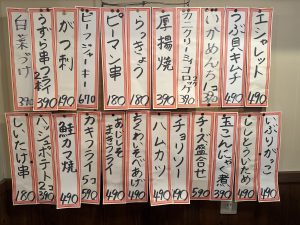 エシャレット 490
つぶ貝キムチ 490
いかめんち 1コ 390
カニクリーミィコロッケ 490
厚揚焼 390
らっきょう 180
ピーマン串 180
ビーフジャーキー 670
がつ刺 490
うずら串フライ 2本 390
白菜づけ 390
いぶりがっこ 490
ししとういため 490
玉こんにゃく煮 390
チーズ盛合せ 590
チョリソー 490
ハムカツ 490
ちくわいそべあげ 490
あじしそまきフライ 490
カキフライ 5コ 590
鮭カマ焼 490
ハッシュポテト 2コ 390
しいたけ串 180